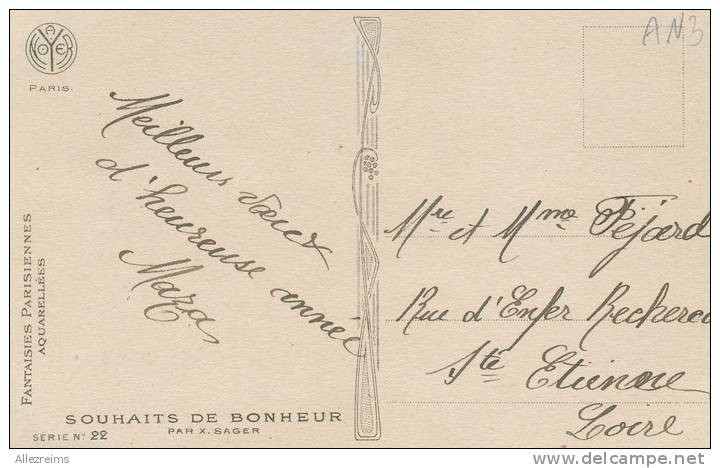 A
NOYER
PARIS.
AN3
Meilleurs vœux
d'heureuse année
Maza
Mre et Mme Féjard
Rue d'Enfer
Ste Etienne
Loire
FANTAISIES PARISIENNES
AQUARELLÉES
SOUHAITS DE BONHEUR
PAR X. SAGER
SÉRIE No 22
Allezreims
www.delcampe.net